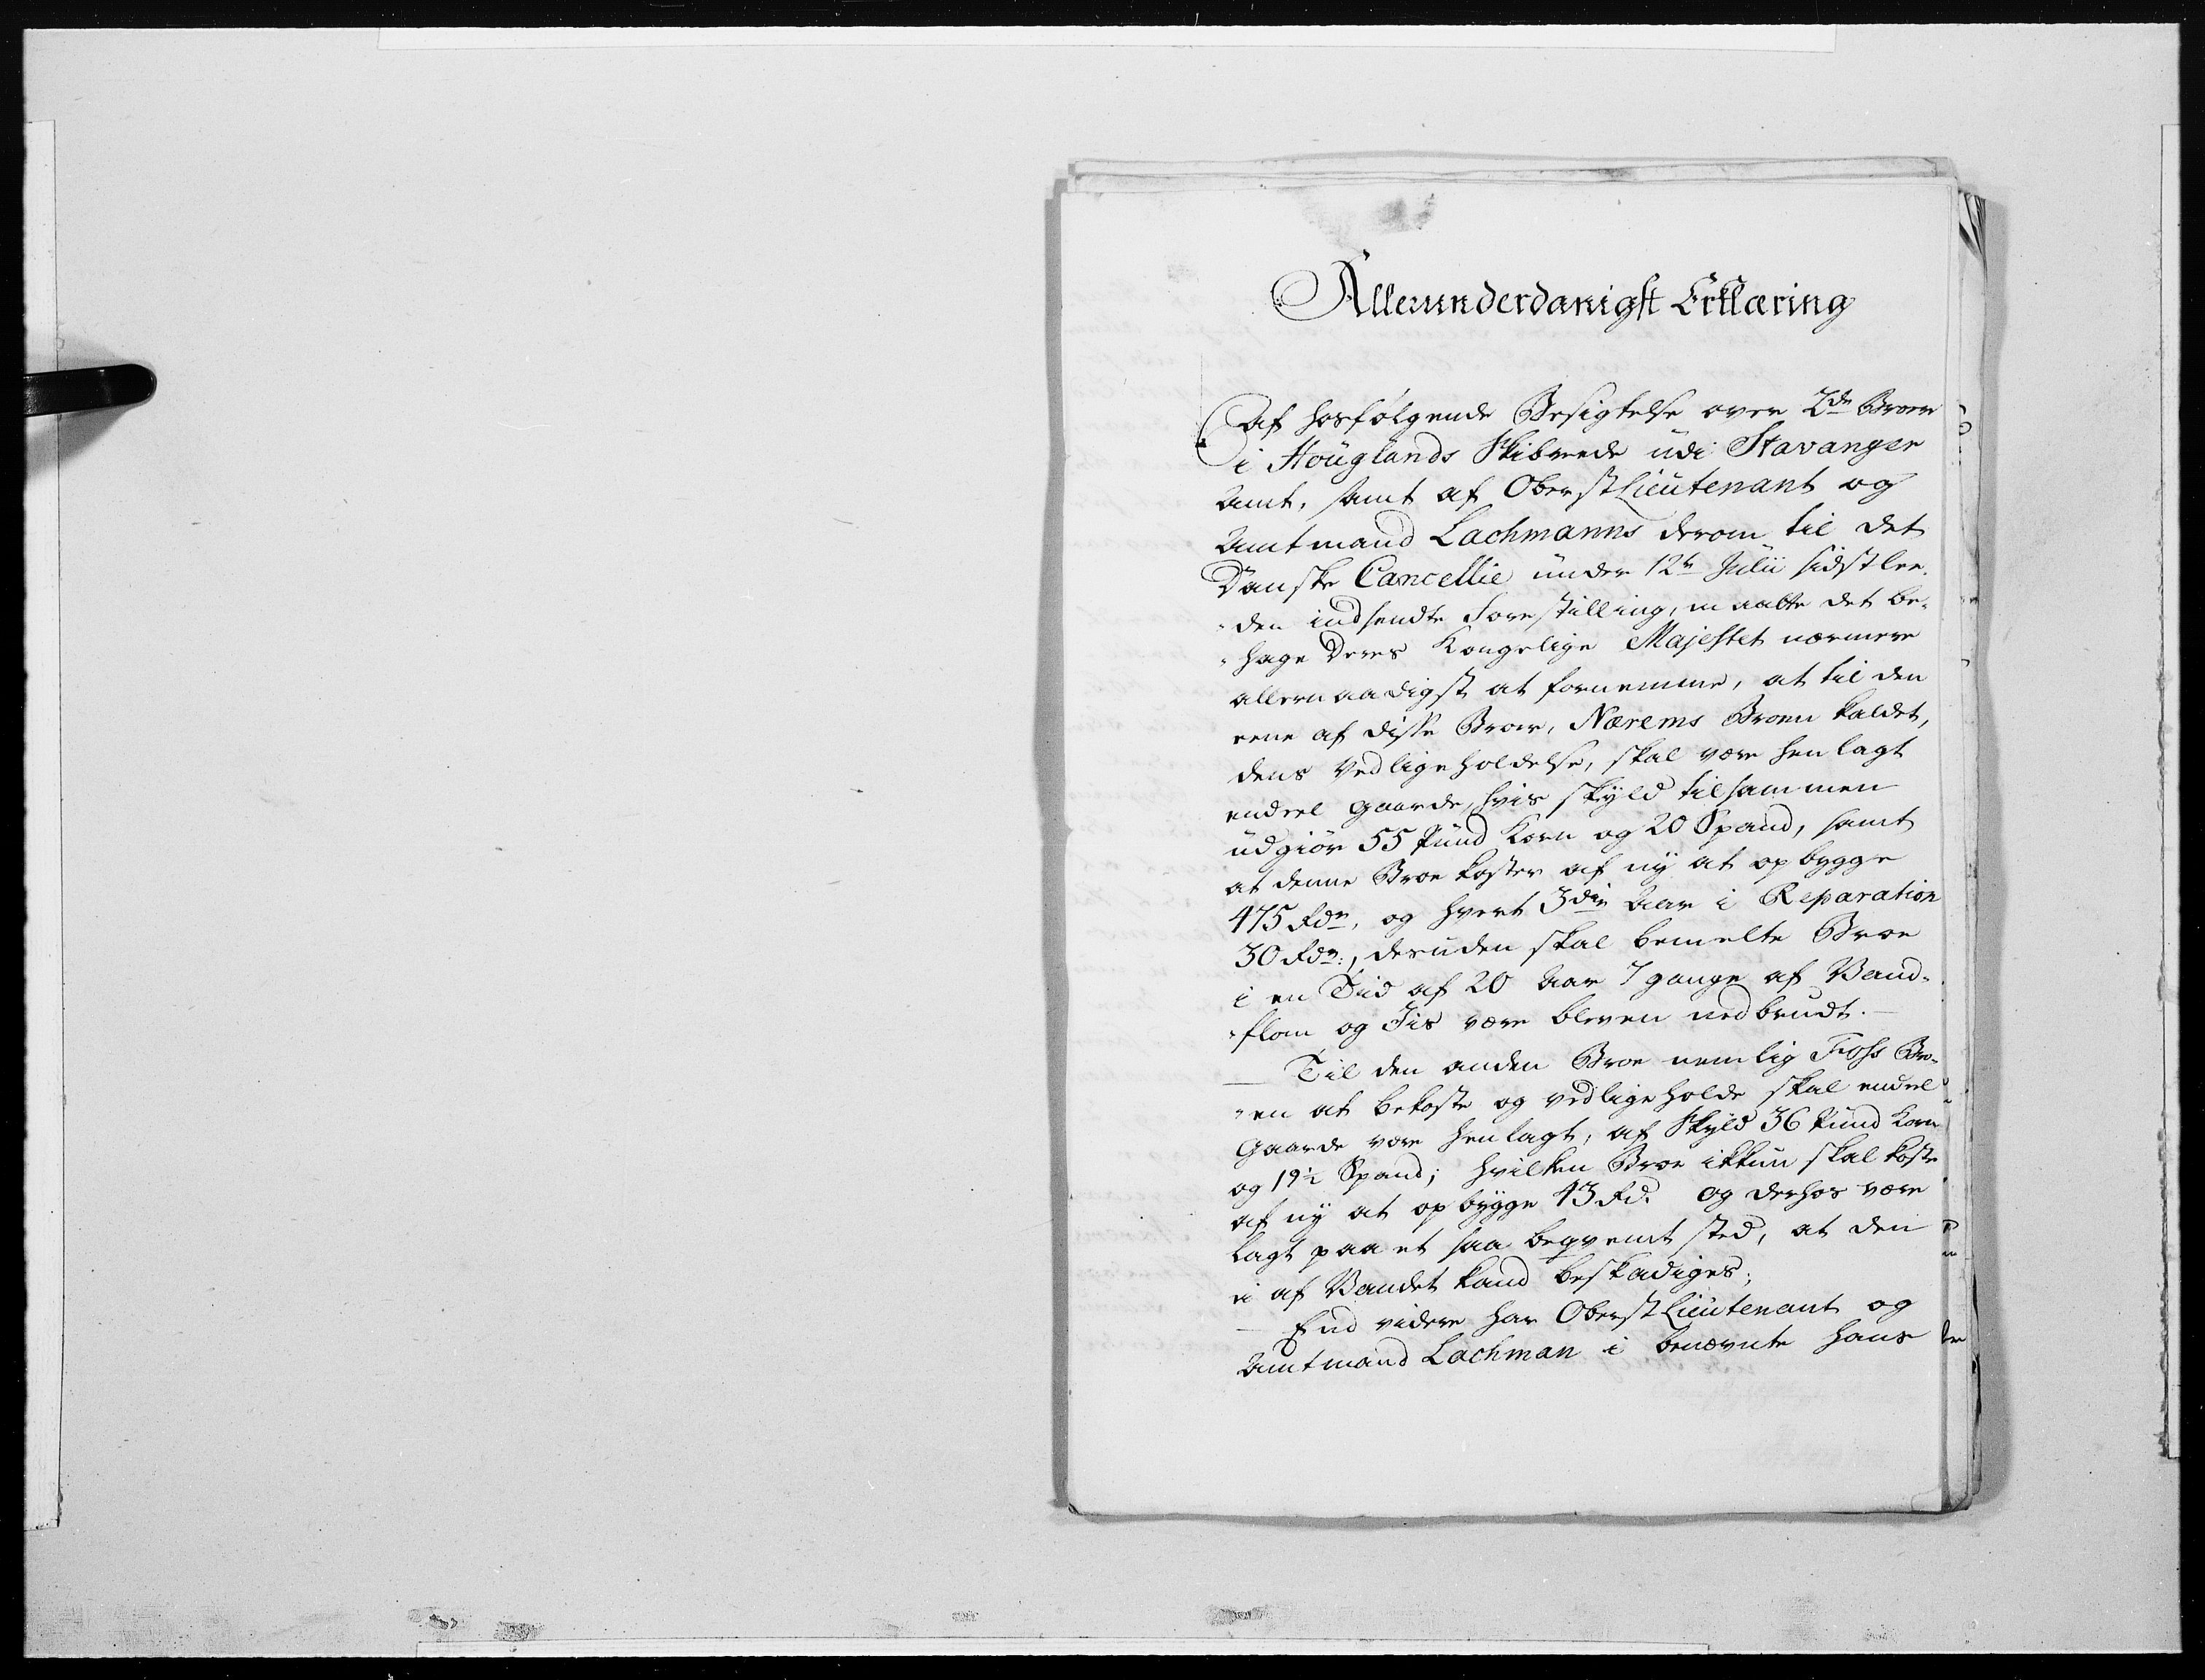 Allerunderdanigst Erklæring
Af hosfølgende Besigtelse over 2de Broer
i Høuglands Skibrede udi Stavanger
Amt, samt af OberstLieutenant og
Amtmand Lachmanns derom til det
Danske Cancellie under 12te Julii sidstlee-
-den indsendte Forestilling, maatte det be-
-hage Deres Kongelige Majestet nærmere
allernaadigst at fornemme, at til den
eene af disse Broer, Nærems Broen kaldet,
dens Vedligeholdelse, skal være henlagt
endeel gaarde, hvis skyld tilsammen
udgiør 55 Pund Korn og 20 Spand, samt
at denne Broe koster af ny at opbygge
475 Rdr, og hvert 3die Aar i Reparation
30 Rdr:, desuden skal bemelte Broe
i en Tid af 20 Aar 7 gange af Vand-
-flom og Iis være bleven nedbrudt.
Til den anden Broe nemlig Foss Bro-
-en at bekoste og vedligeholde skal endeel
Gaarde være henlagt, af Skyld 36 Pund Korn
og 19½ Spand; hvilken Broe ikkun skal koste
af ny at opbygge 43 Rd. og derhos være
lagt paa et saa beqvemt sted, at den
ei af Vandet kand beskadiges;
End videre har OberstLieutenant og
Amtmand Lachman i benævnte hans